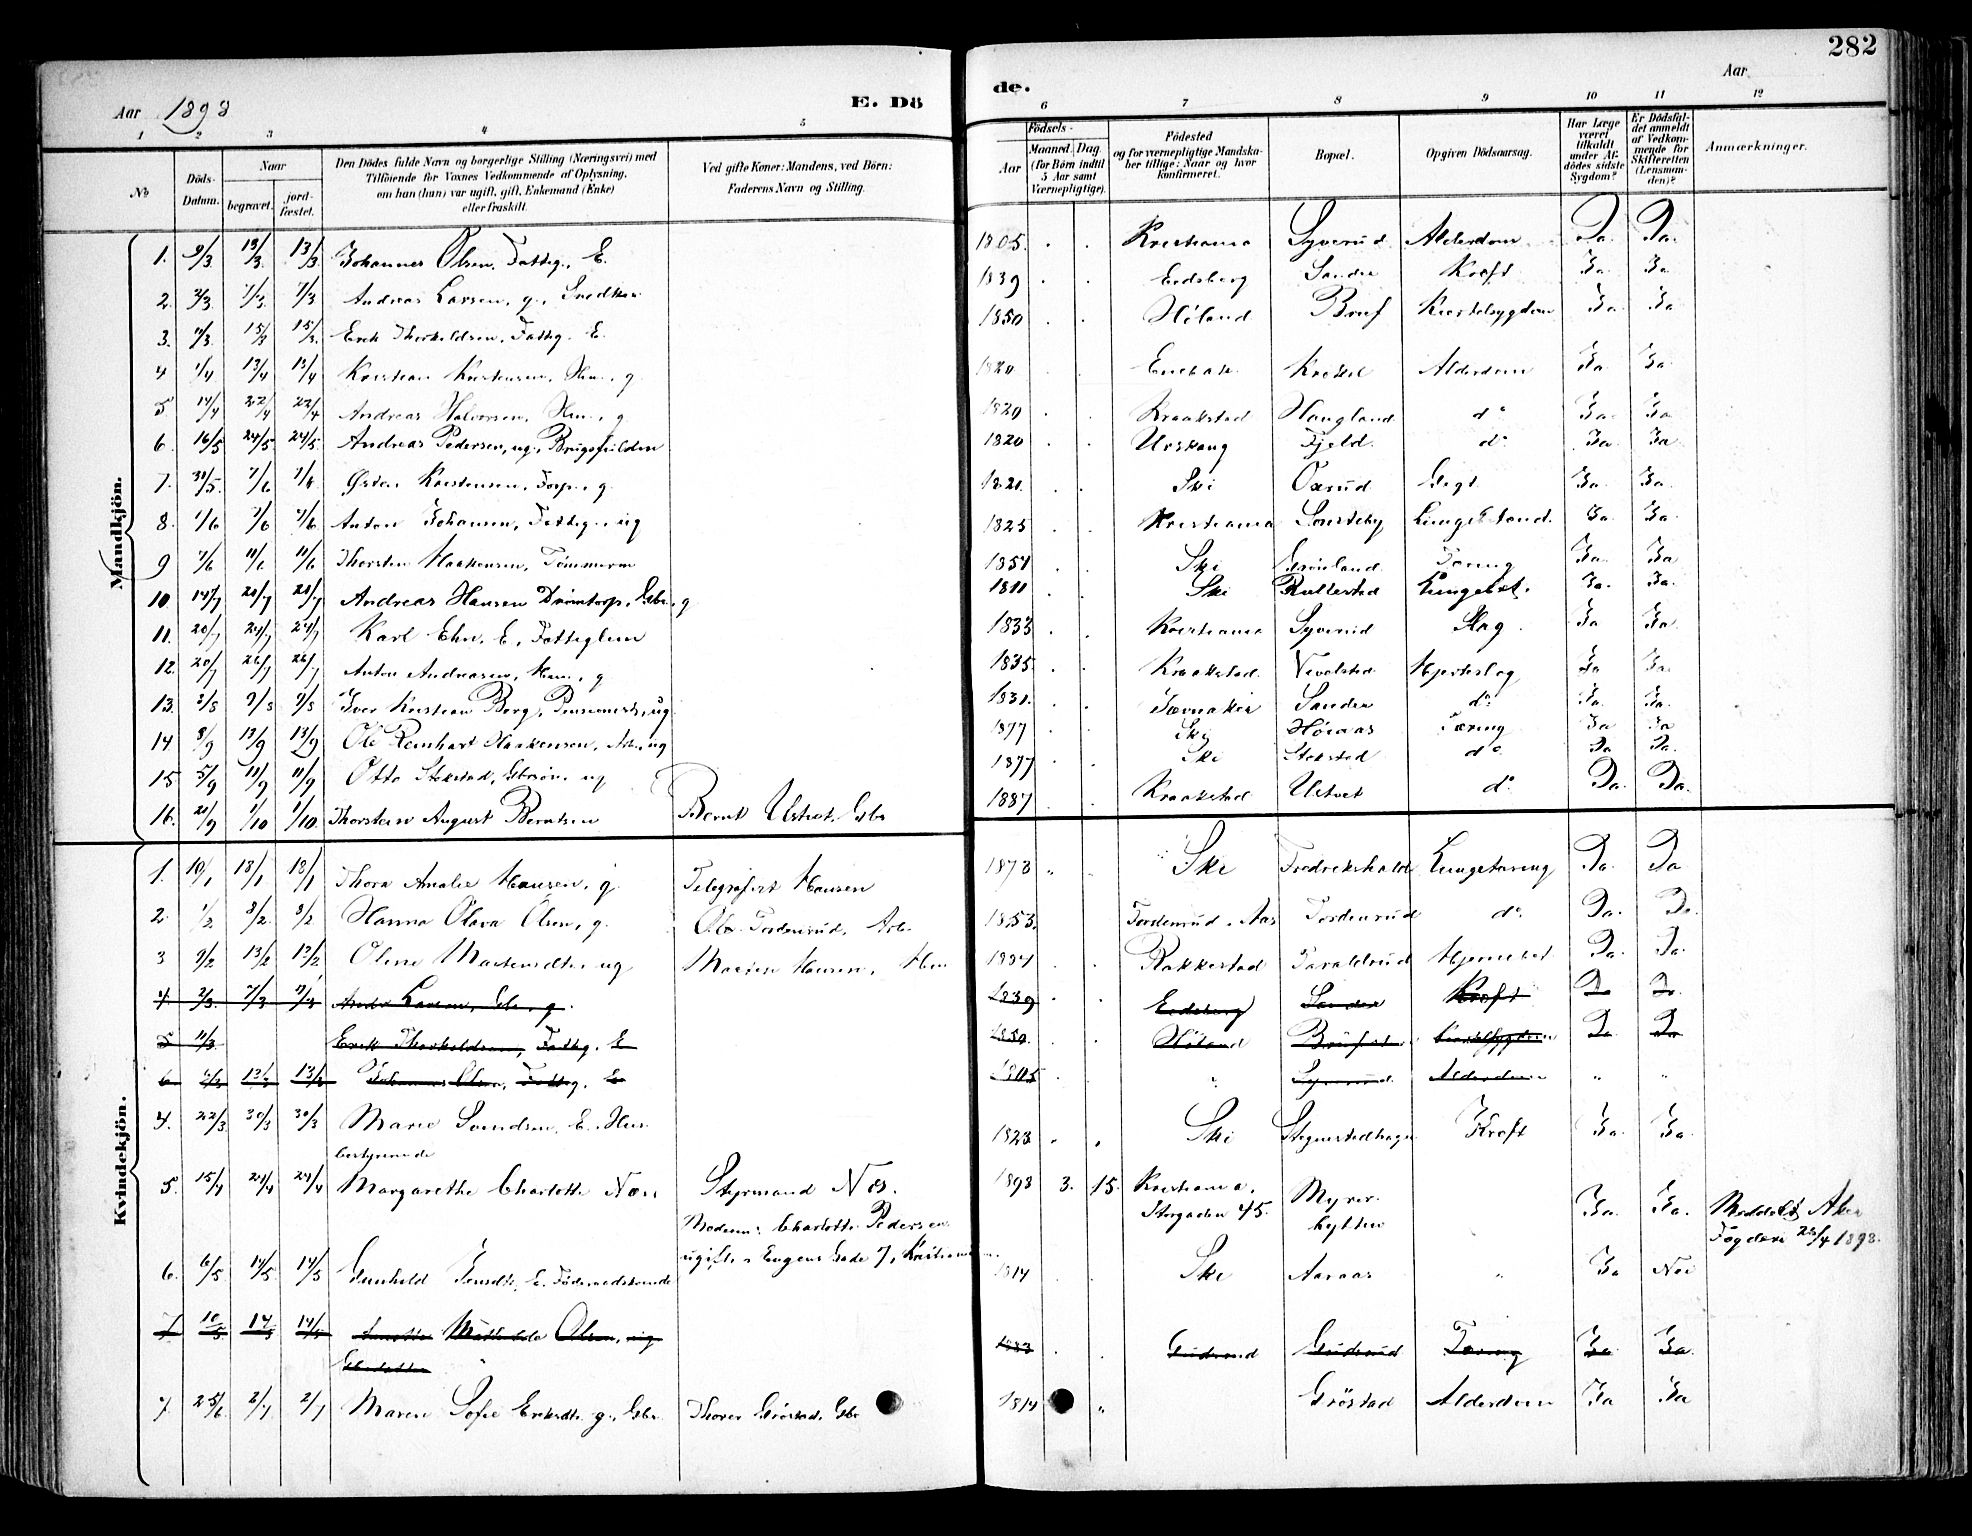 282
Aar 1898
E. Dö
de.
Aar
1 2 3 4 5 6 7 8 9 10 11 12
No
Döds-Datum.
Naar
begravet.
jord-fæstet.
Den Dödes fulde Navn og borgerlige Stilling (Næringsvei) med
Tilföiende for Voxnes Vedkommende af Oplysning,
om han (hun) var ugift, gift, Enkemand (Enke)
eller fraskilt.
Ved gifte Koner: Mandens, ved Börn:
Faderens Navn og Stilling.
Födsels-
Aar
Maaned. Dag.
(for Börn indtil
5 Aar samt
Værnepligtige).
Födested
og for værnepligtige Mandska-
ber tillige: Naar og hvor
konfirmeret.
Bopæl.
Opgiven Dödsaarsag.
Har Læge
været
tilkaldt
under Af-
dödes sidste
Sygdom?
Er Dödsfal-
det anmeldt
af Vedkom-
mende for
Skifteretten
(Lensman-
den)?
Anmærkninger.
Mandkjön.
1. 9/3 13/3 13/3 Johannes Olsen, Fattig, E. 1805 Kristiania Syverud Alderdom Ja. Ja.
2. 2/3 7/3 7/3 Andreas Larsen, g., Snedker 1839 Eidsberg Sander Kræft Ja Ja
3. 11/3 15/3 15/3 Erik Thorkildsen, Fattig. E. 1850 Høland Kjertelsygdom Ja. Ja
4 1/4 13/4 13/4 Kristian Kristensen, Hm., g. 1820 Enebak Alderdom Ja. Ja
5 14/4 22/4 22/4 Andreas Halvorsen, Hm., g 1820 Kraakstad Haugland do Ja. Ja
6. 16/5 24/5 24/5 Andreas Pedersen, ug., 1820 Urskoug Fjeld. do Ja. Ja
7. 31/5 7/6 7/6 Østen Kristensen, g. Ski Oxrud Gigt Ja. Ja.
8. 1/6 7/6 7/6 Anton Johansen, Fattig., ug 1825 Kristiania Ja. Ja.
9 7/6 11/6 11/6 Thorsten Haakensen, Tømmerm 1857 Ski Grönland Tæring Ja. Ja
10 14/7 20/7 20/7 Andreas Hansen Drömtorp, Gbr., g Ski Rullestad Lungebet. Ja. Ja.
11. 20/7 24/7 24/7 Karl Ehn, E, Fattiglem 1833 Kristiania Syverud Slag Ja Ja.
12. 20/7 26/7 26/7 Anton Andreasen, Hm., g 1835 Kraakstad Vevelstad Hjerteslag Ja Ja.
13. 3/8 9/8 9/8 Iver Kristian Berg, Pensionist, ug. 1831. Jævnaker Sander do. Ja. Ja.
14 8/9 13/9 13/9 Ole Reinhart Haakensen, Arb., ug 1877 Ski Høiaas Tæring Ja Ja
15 5/9 11/9 11/9 Otto Stokstad, Gbrsøn, ug 1877 Ski Stokstad do Ja Ja.
16. 21/9 1/10 1/10. Thorstein August Berntsen Bernt Ustvet, Gbr 1887 Kraakstad Ustvet do Ja. Ja.
Kvindekjön.
1. 10/1 18/1 18/1 Thora Amalie Hansen, g. Telegrafist Hansen 1873 Ski Fredrikshald Lungetæring Ja. Ja
2. 1/2 8/2 8/2 Hanna Olava Olsen, g. Ole Tordenrud, Arb. 1853. Tordenrud, Aas Tordenrud do. Ja. Ja.
3 9/2 13/2 13/2 Oline Martinsdtr, ug Martin Hansen, Hm Rakkestad Taraldrud Hjernebet Ja. Ja.
4. 2/3 7/3 7/3 Larsen, Gbr, g. 1839 Eidsberg Sander Kræft Ja Ja.
5 11/3 Erik Thorkildsen, Fattig. E 1850. Høland Kjertelsygdom Ja Ja
6 9/3 13/3 13/3 Johannes Olsen, Fattig, E 1805 " Syverud Alderdom " "
4. 22/3 30/3 30/3 Marie Svendsen, E. Hus-
bestyrende 1823 Ski Kræft Ja. Ja.
5. 15/4 24/4 24/4 Margarethe Charlotte Næss Styrmand Næs. 1898 3. 15. Kristiania, Storgaden 45. Myrer-
hytten Ja. Ja. Meddelt Aker
Fogderi 25/4 1898.
Moderen: Charlotte Pedersen
ugift, Eugens Gade 7, Kristiania
6. 6/5 14/5 14/5 Gunhild Jensdtr, E. Føderaadskvinde 1814 Ski Aaraas " Ja Nei
7 10/5 14/5 14/5 Mathilde Olsen, ug
Gbrdatter 1883 Gudsrud Gudsrud Tæring Ja Ja.
7. 25/6 2/7 2/7 Maren Sofie Eriksdtr, g., Gbr. Thorer Gröstad, Gbr 1814 " Gröstad Alderdom Ja Ja